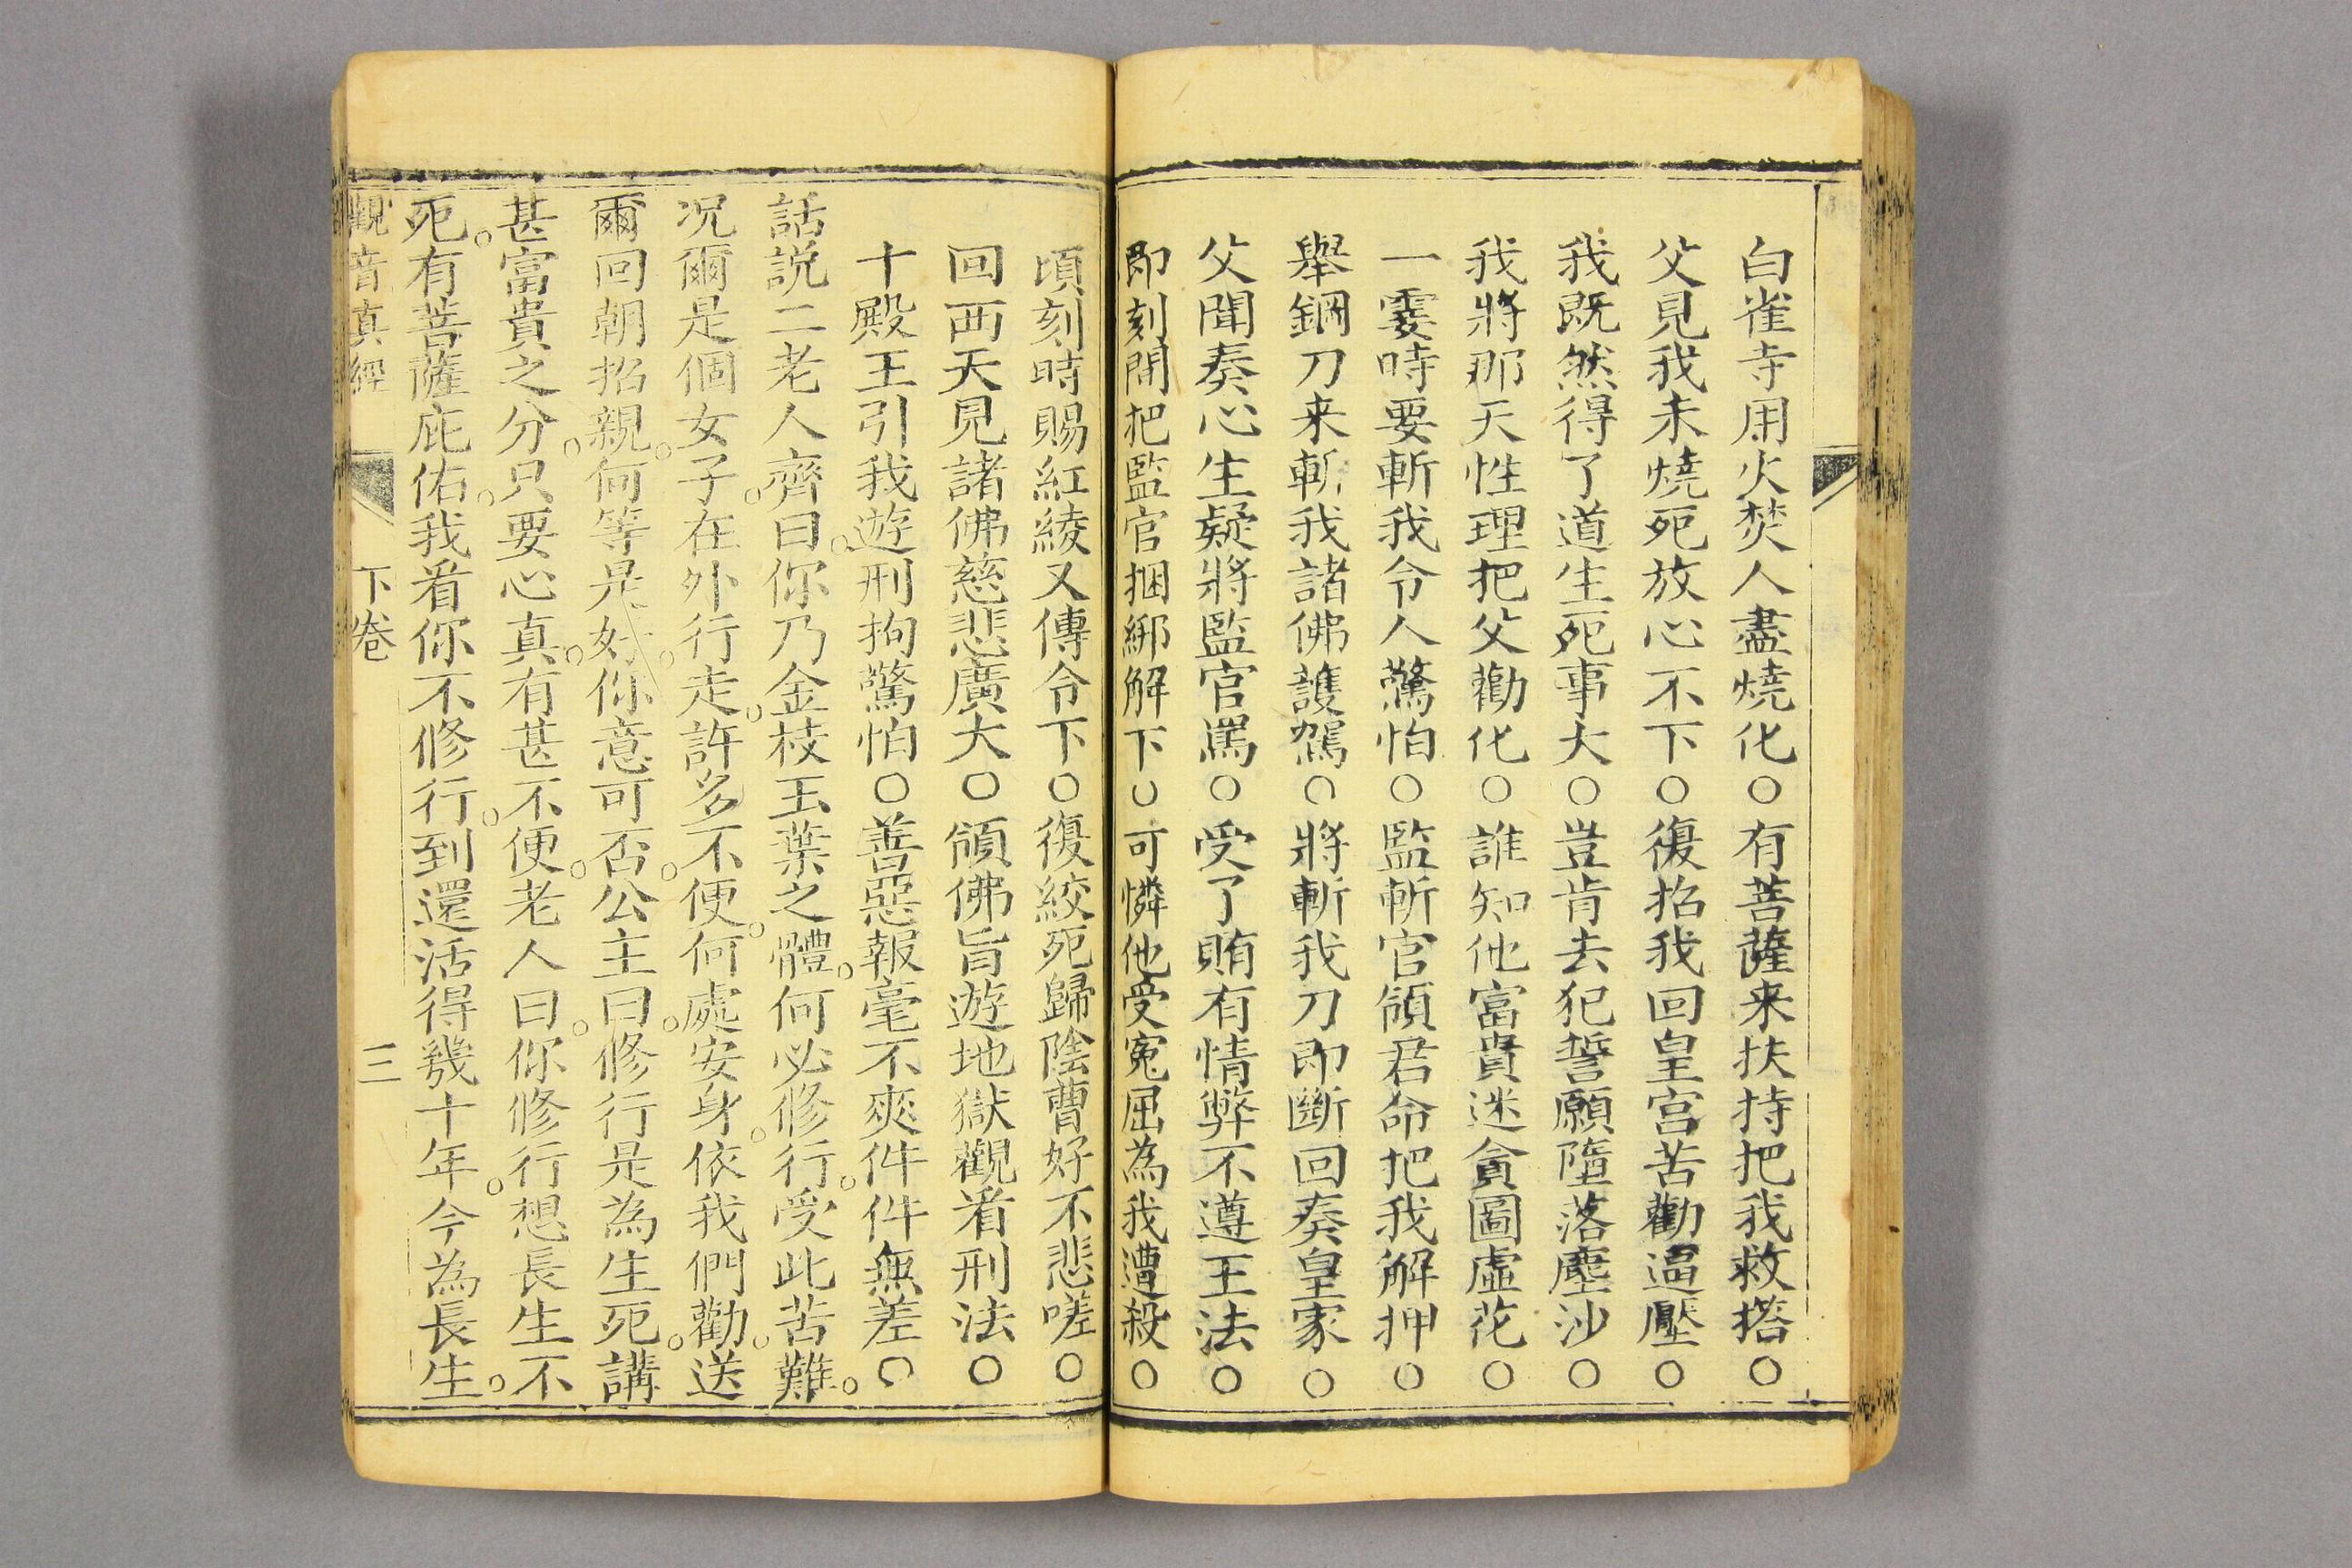 白雀寺用火焚人盡燒化○有菩薩来扶持把我救搭○
父見我未燒死放心不下○復招我回皇宫苦勸逼壓○
我既然得了道生死事大○豈肯去犯誓願墮落塵沙○
我將那天性理把父勸化○誰知他富貴迷貪圖虛花○
一霎時要斬我令人驚怕○監斬官領君命把我解押○
舉鋼刀来斬我諸佛護駕○將斬我刀即斷回奏皇家○
父聞奏心生疑將監官罵○受了賄有情弊不遵王法○
即刻間把監官捆綁解下○可憐他受寃屈為我遭殺○
頃刻時賜紅綾又傳令下○復絞死歸陰曹好不悲嗟○
回西天見諸佛慈悲廣大○領佛旨遊地獄觀看刑法○
十殿王引我遊刑拘驚怕○善惡報毫不爽件件無差○
話説二老人齊曰。你乃金枝玉葉之體。何必修行。受此苦難。
况爾是個女子。在外行走。許多不便。何處安身。依我們勸。送
爾回朝招親。何等是好。你意可否。公主曰。修行是為生死。講
甚富貴之分。只要心真。有甚不便。老人曰。你修行想長生不
死。有菩薩庇佑。我看你不修行。到還活得幾十年。今為長生。
觀音真經 下卷 三